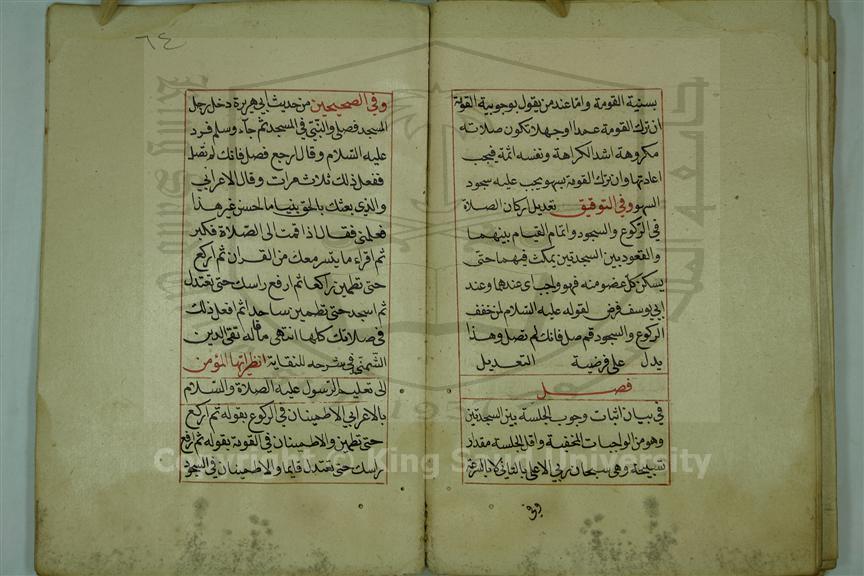 بسنية القومة واما عند من يقول بوجوبية القومة
ان ترك القومة عمدا اوجهلا تكون صلاته
مكروهة اشد الكراهة ونفسه اثمة فيجب
اعادتها وان ترك القومة بسهو يجب عليه سجود
السهو وفي التوفيق تعديل اركان الصلاة
في الركوع والسجود واتمام القيام بينهما
والقعود بين السجدتين يمكث فيهما حتى
يسكن كل عضو منه فهو واجب اى عندها وعند
ابي يوسف فرض لقوله عليه السلام لمن خفف
الركوع والسجود قم صل فانك لم تصل وهذا
يدل على فرضية التعديل
فصل
في بيان اثبات وجوب الجلسة بين السجدتين
وهو من الواجبات المخفية واقل الجلسة مقدار
تسبيحة وهي سبحان ربي الاعلى بالتاني لا بالسرعة
وفي
٦٤
وفي الصحيحين من حديث ابي هريرة دخل رجل
المسجد فصلى والنبي في المسجد ثم جاء وسلم فرد
عليه السلام وقال ارجع فصل فانك لم تصل
ففعل ذلك ثلاث مرات وقال الاعرابي
والذى بعثك بالحق بنيا ما احسن غير هذا
فعلمنى فقال اذا قمت الى الصلاة فكبر
ثم اقراء ما يتسر معك من القران ثم اركع
حتى تطمين راكعا ثم ارفع راسك حتى تعتدل
ثم اسجد حتى تطمين ساجدا ثم افعل ذلك
في صلاتك كلها انتهى ما قاله تقي الدين
الشمني في شرحه للنقاية انظر ايها المؤمن
الى تعليم الرسول عليه الصلاة والسلام
بالاعرابي الاطمينان في الركوع بقوله ثم اركع
حتى تطمين والاطمينان في القومة بقوله ثم ارفع
راسك حتى تعتدل قايما والاطمينان في السجود
Copyright © King Saud University